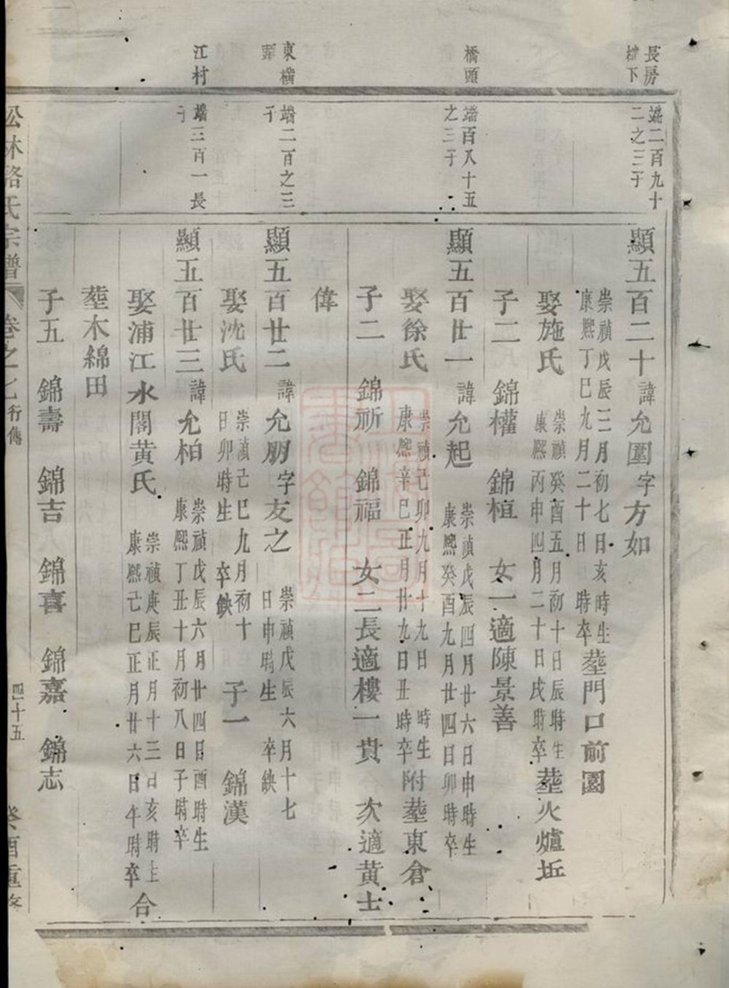 長房
下
端二百九十
二之三子
顯五百二十諱允圍字方如
崇禎戊辰三月初七日亥時生
康熙丁巳九月二十日　時卒
塟門口前園
娶施氏
崇禎癸酉五月初十日辰時生
康熙丙申四月二十日戌時卒
塟火爐坵
子二　錦權　錦植　女一適陳景善
橋頭
端百八十五
之三子
顯五百廿一諱允起
崇禎戊辰六月廿六日申時生
康熙癸酉九月廿四日卯時卒
娶徐氏
崇禎己卯九月十九日　時生
康熙辛巳正月廿九日丑時卒
附塟東倉
子二　錦祈　錦福　女二長適樓一貫　次適黃士
偉
東橫
端二百之三
子
顯五百廿二諱允朋字友之
崇禎戊辰六月十七
日申時生　卒缺
娶沈氏
崇禎己巳九月初十
日卯時生　卒缺
子一　錦漢
江村
端三百一長
子
顯五百廿三諱允柏
崇禎戊辰六月廿四日酉時生
康熙丁丑十月初八日子時卒
娶浦江水閣黃氏
崇禎庚辰正月十三日亥時生
康熙己巳正月廿六日午時卒
合
塟木綿田
子五　錦壽　錦吉　錦喜　錦嘉　錦志
松林駱氏宗譜
卷之七
行傳
四十五
癸酉重修